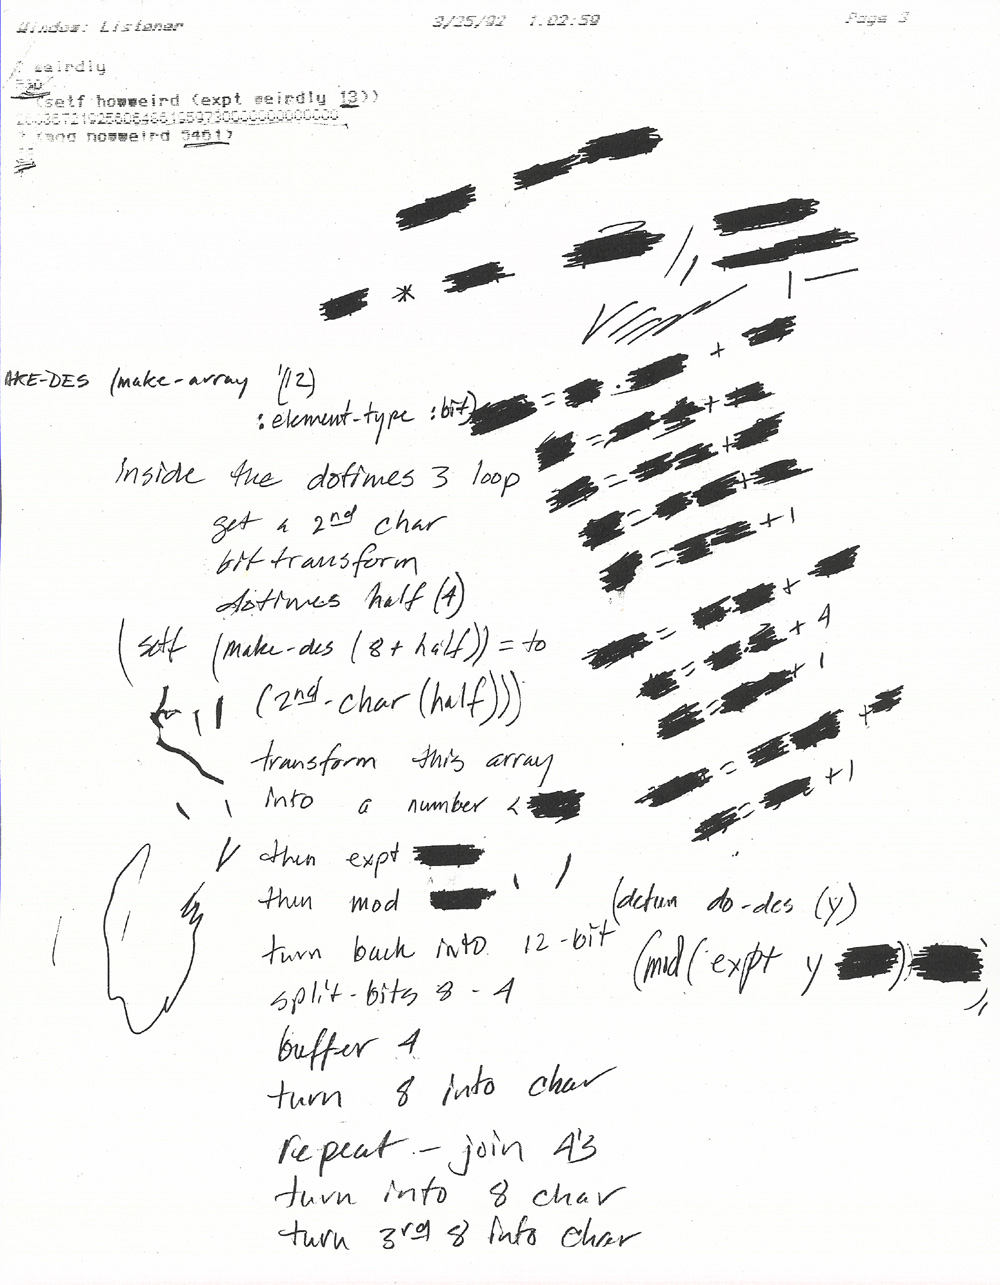 Window: Listener 3/25/92 1:02:59 Page 3
? weirdly
(setf howweird (expt weirdly 13))
? (mod howweird 5461)
*
1 —
+
AKE-DES (make-array '(12)
:element-type :bit)
= . +
= +
= +
= +
= +1
inside the dotimes 3 loop
get a 2nd char
bit transform
dotimes half (4)
(setf (make-des (8 + half)) = to
(2nd-char (half)))
= +
= +4
= +1
transform this array
into a number <
= +
= +1
then expt
then mod
(defun do-des (y)
(mod (expt y ) )
turn back into 12-bit
split-bits 8 - 4
buffer 4
turn 8 into char
repeat — join 4's
turn into 8 char
turn 3rd 8 into char